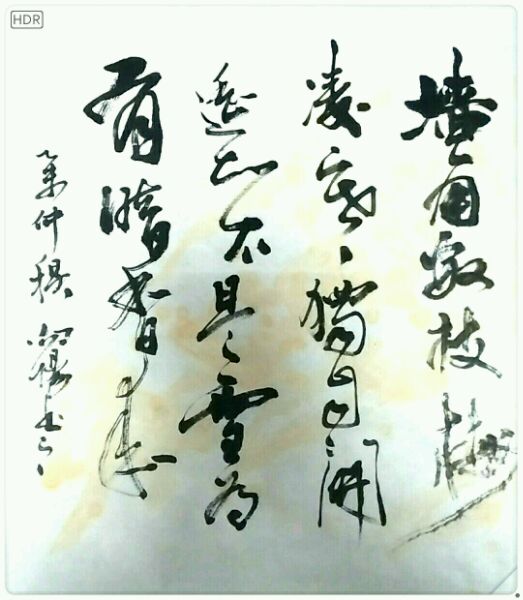 HDR
墙角数枝梅
凌寒獨自開
遥知不是雪為
有暗香来